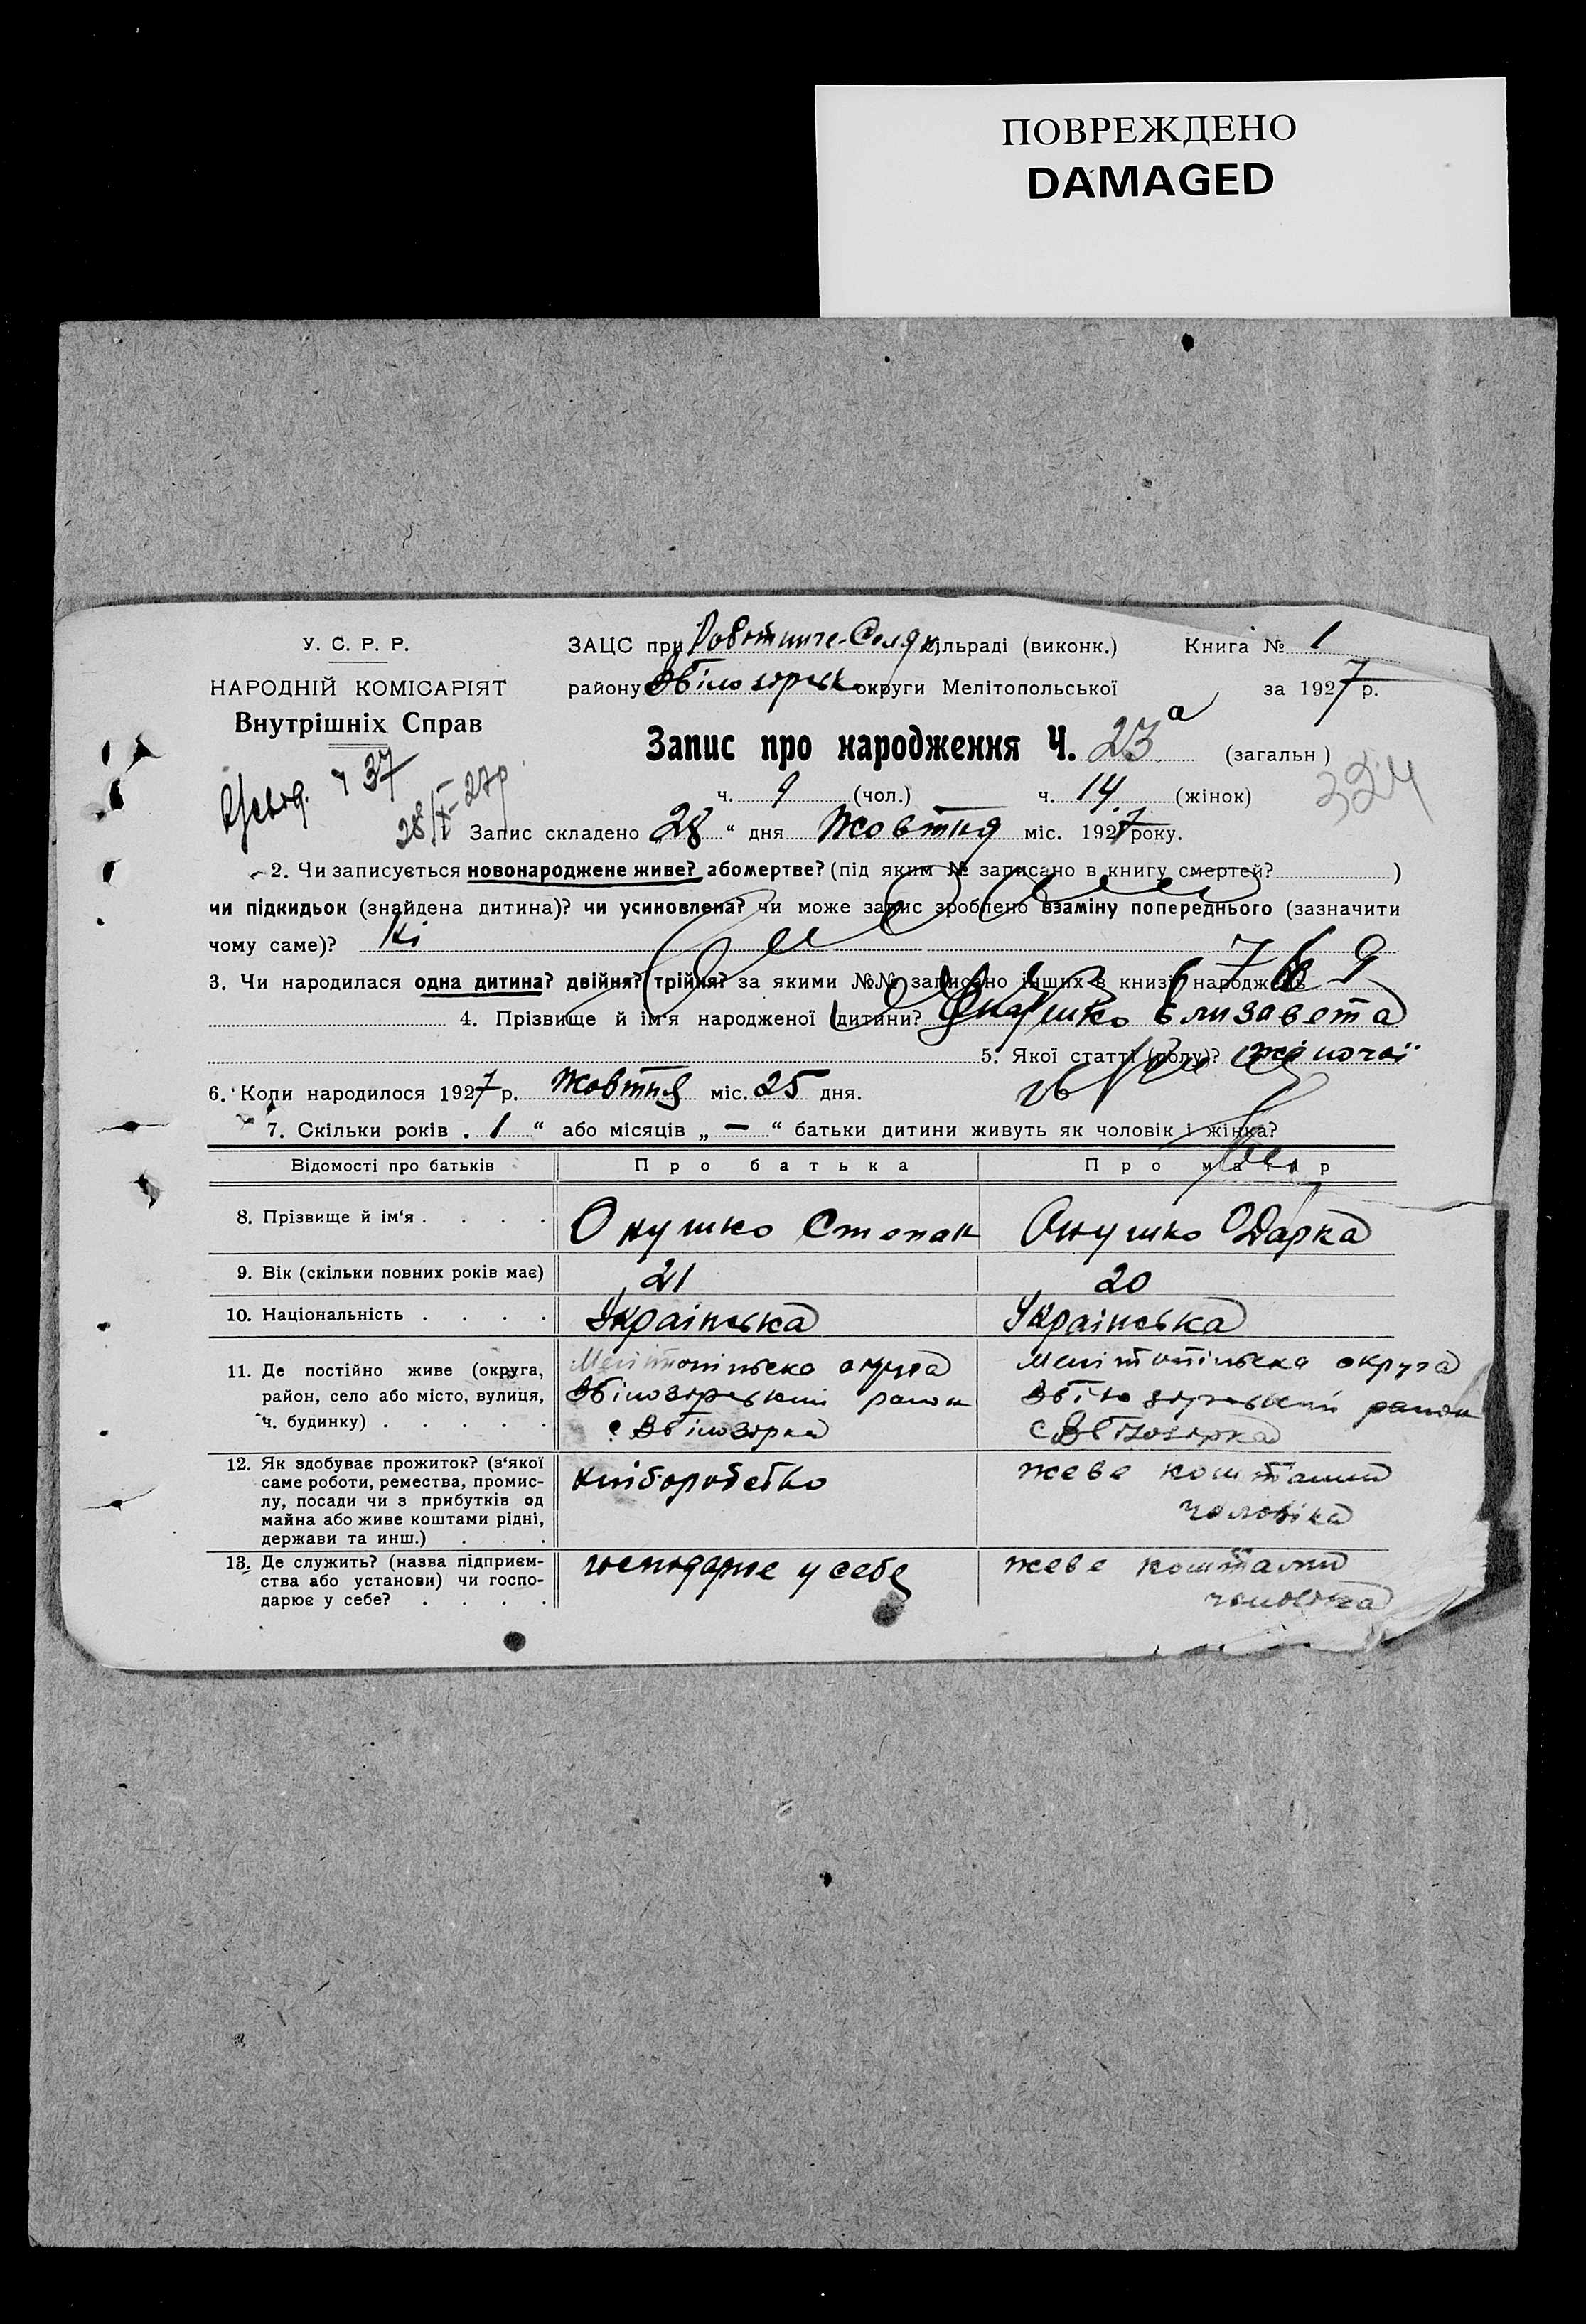 ПОВРЕЖДЕНО
DAMAGED
У. С. Р. Р.
НАРОДНІЙ КОМІСАРІЯТ
Внутрішніх Справ
ЗАЦС при сільраді (виконк.) Книга № 1
району округи Мелітопольської за 1927 р.
Запис про народження Ч. 23а (загальн)
324
ч. 9 (чол.) ч. 14 (жінок)
ч 37
28/X-27р.
Запис складено „28“ дня Жовтня міс. 1927 року.
2. Чи записується новонароджене живе? або мертве? (під яким № записано в книгу смертей? )
чи підкидьок (знайдена дитина)? чи усиновлена? чи може запис зроблено взаміну попереднього (зазначити
чому саме)? Ні
3. Чи народилася одна дитина? двійня? трійня? за якими №№ записано інших в книзі народжень
4. Прізвище й ім'я народженої дитини? Онушко Єлизавета
5. Якої статті (полу)? жіночої
6. Коли народилося 1927 р. Жовтня міс. 25 дня.
7. Скільки років „1“ або місяців „—“ батьки дитини живуть як чоловік і жінка?
Відомості про батьків Про батька Про матір
8. Прізвище й ім'я Онушко Степан Онушко Одарка
9. Вік (скільки повних років має) 21 20
10. Національність Українська Українська
11. Де постійно живе (округа, район, село або місто, вулиця, ч. будинку)
Мелітопільска округа
Збілозорський район
с Збілозорка
Мелітопільска округа
Збілозорський район
с Збілозорка
12. Як здобуває прожиток? (з'якої саме роботи, ремества, промислу, посади чи з прибутків од майна або живе коштами рідні, держави та инш.)
хліборобство
жеве коштами
чоловіка
13. Де служить? (назва підприємства або установи) чи господарює у себе?
господарює у себе
жеве коштами
чоловіка